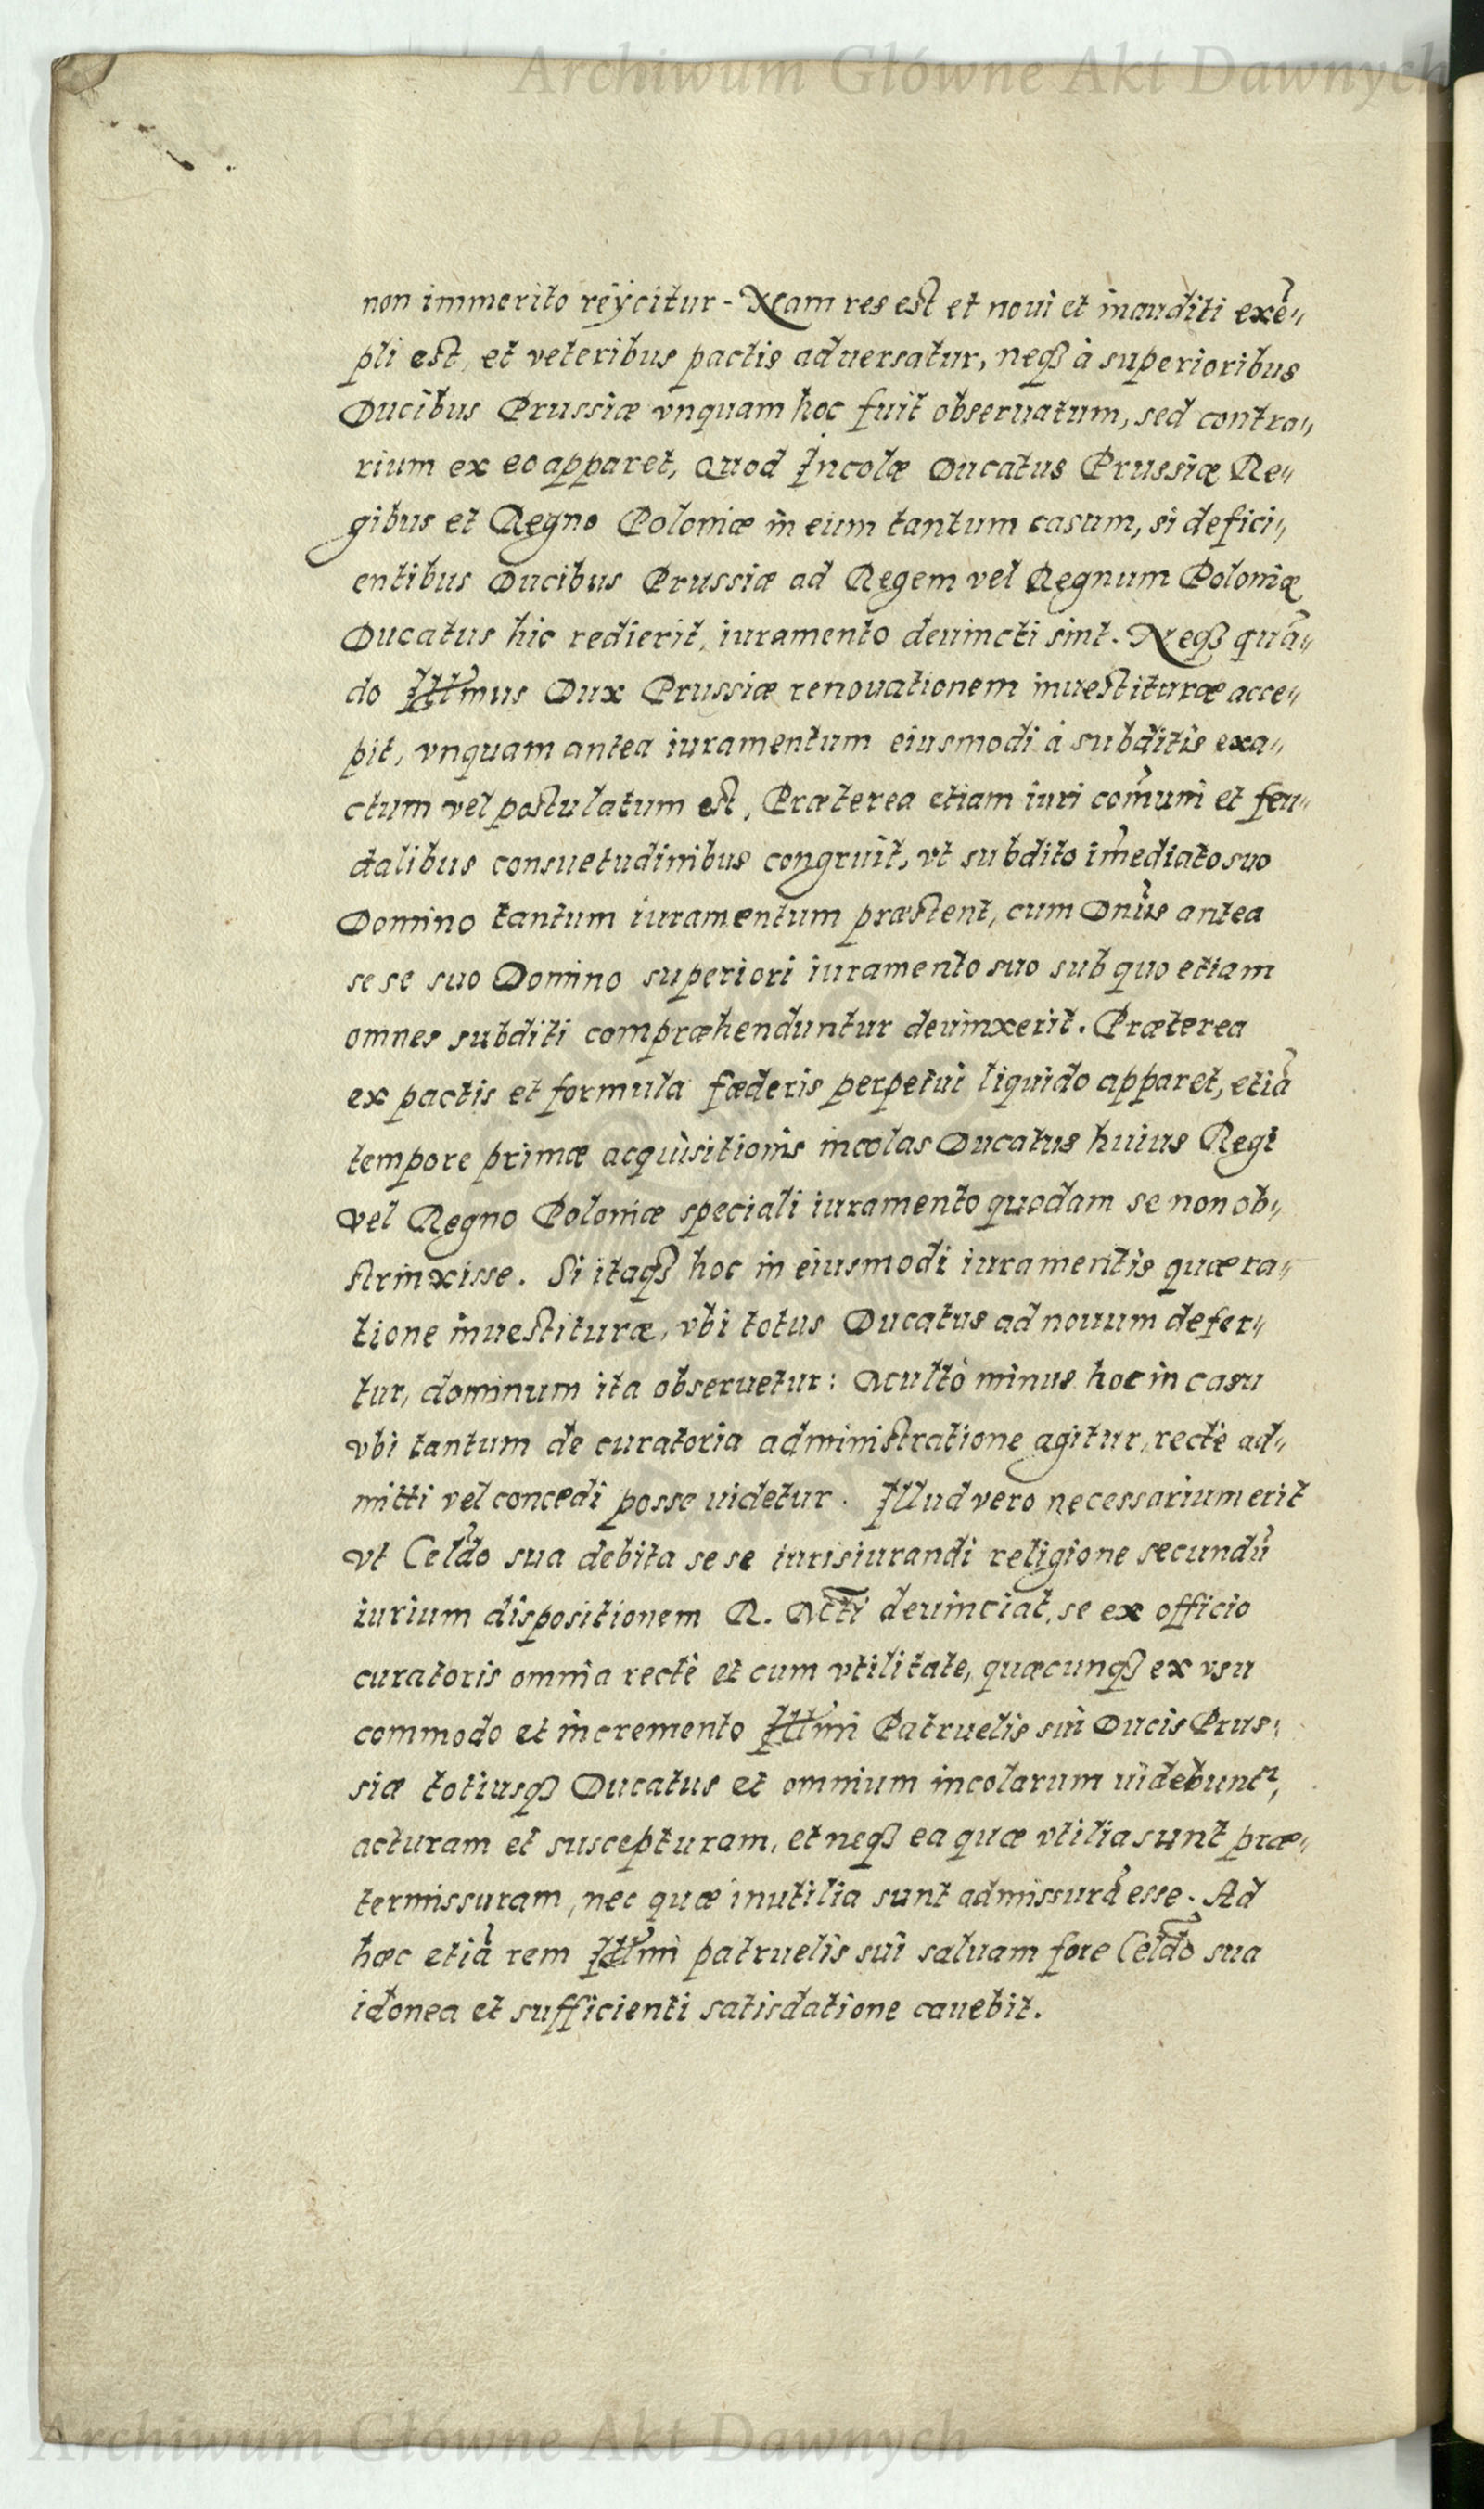 Archiwum Główne Akt Dawnych
non immerito reÿcitur - Nam res est et noui et inauditi exē„
pli est, et veteribus pactis aduersatur, neqȝ à superioribus
Ducibus Prussiæ vnquam hoc fuit obseruatum, sed contra„
rium ex eo apparet, Quod Incolæ Ducatus Prussiæ Re„
gibus et Regno Poloniæ in eum tantum casum, si defici„
entibus Ducibus Prussiæ ad Regem vel Regnum Poloniæ
Ducatus hic redierit, iuramento deuincti sint. Neqȝ quā„
do Illmus Dux Prussiæ renouationem inuestituræ acce„
pit, vnquam antea iuramentum eiusmodi à subditis exa„
ctum vel postulatum est, Præterea etiam iuri com̃uni et feu„
dalibus consuetudinibus congruit, vt subdito im̃ediato suo
Domino tantum iuramentum præstent, cum Dn̄us antea
se se suo Domino superiori iuramento suo sub quo etiam
omnes subditi compræhenduntur deuinxerit. Præterea
ex pactis et formula fœderis perpetui liquido apparet, etiā
tempore primæ acquisitionis incolas Ducatus huius Regi
vel Regno Poloniæ speciali iuramento quodam se non ob„
strinxisse. Si itaqȝ hoc in eiusmodi iuramentis quæ ra„
tione inuestituræ, vbi totus Ducatus ad nouum defer„
tur, dominum ita obseruetur: Multò minus hoc in casu
vbi tantum de curatoria administratione agitur, rectè ad„
mitti vel concedi posse uidetur. Illud vero necessarium erit
vt Celdõ sua debita se se iurisiurandi religione secundū
iurium dispositionem R. Mtĩ deuinciat, se ex officio
curatoris omnia rectè et cum vtilitate, quæcunqȝ ex vsu
commodo et incremento Illmi Patruelis sui Ducis Prus„
siæ totiusqȝ Ducatus et omnium incolarum uidebuntʳ,
acturam et suscepturam, et neqȝ ea quæ vtilia sunt præ„
termissuram, nec quæ inutilia sunt admissurā esse. Ad
hæc etiā rem Illmi patruelis sui saluam fore Celdõ sua
idonea et sufficienti satisdatione cauebit.
Archiwum Główne Akt Dawnych